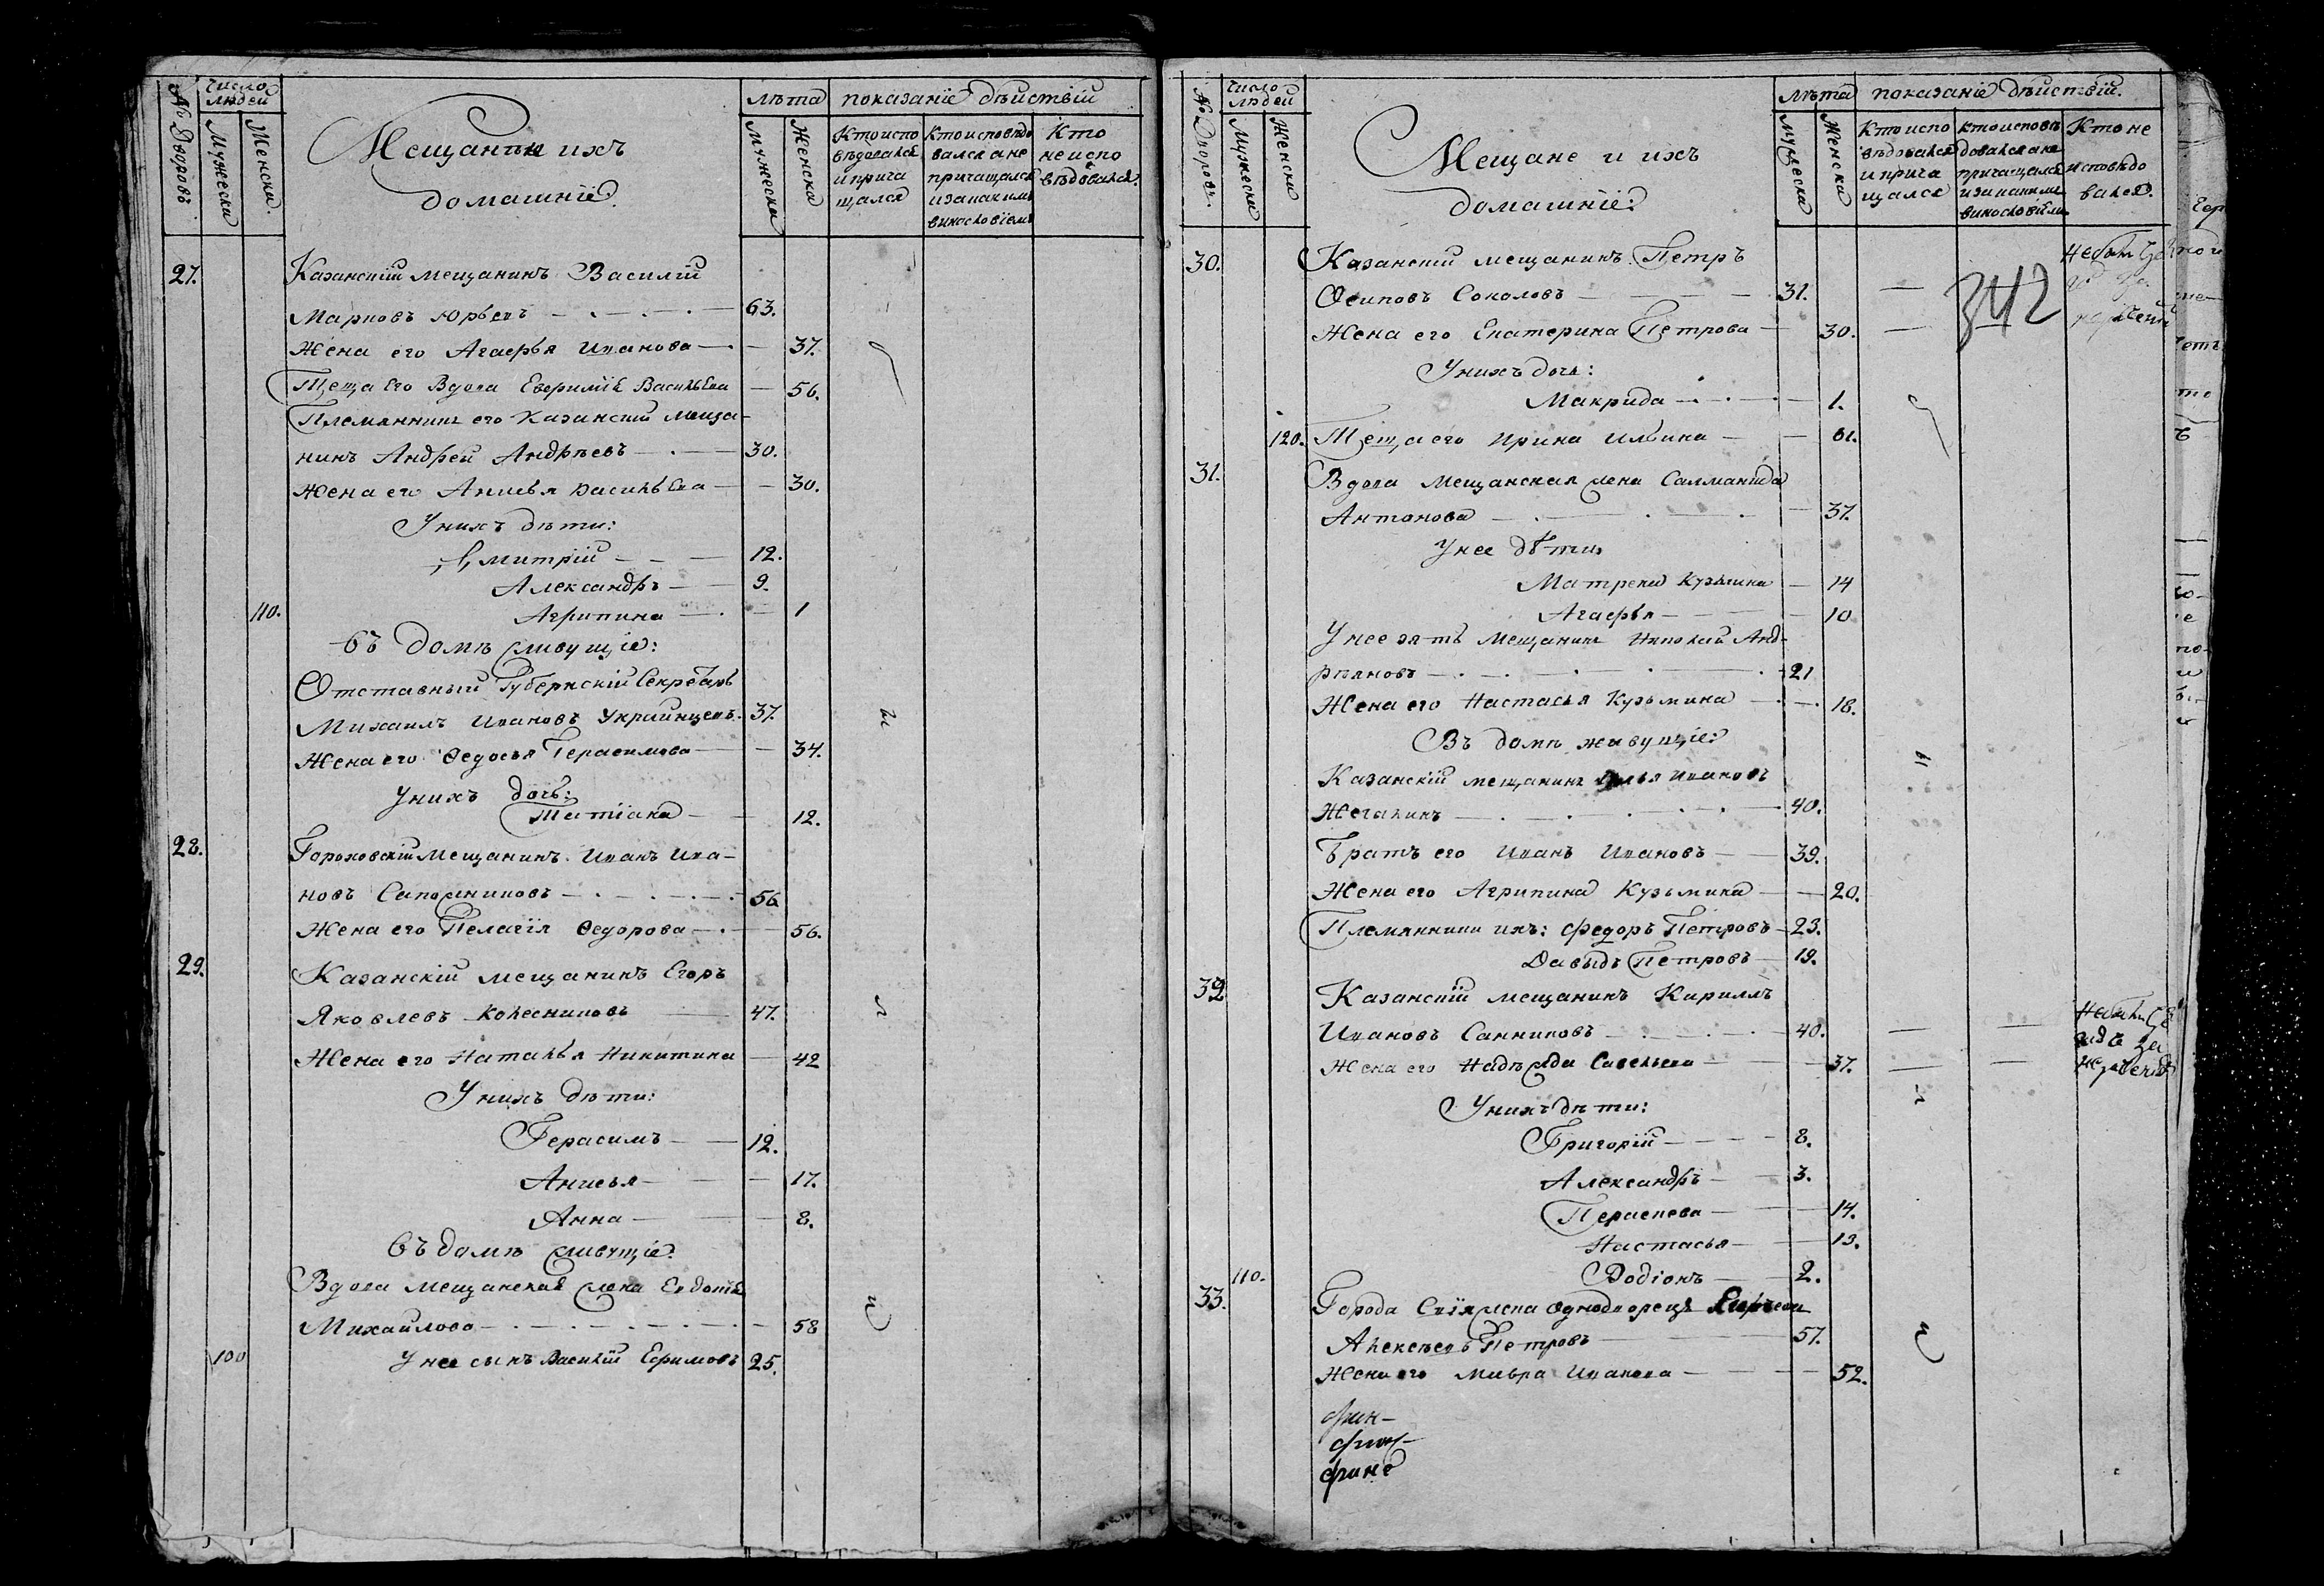 № Дворовъ
Число людей
Мужеска
Женска.
Мещане и ихъ
домашнїе.
лѣта
Мужеска
Женска
показанїе дѣйствїй
Кто испо
вѣдовался
и прича
щался
Кто исповѣдо
вался а не
причащался
и за какимъ
винословїемъ
Кто
не испо
вѣдовался.
27.
Казанскїй мещанинъ Василїй
Марковъ Юрьевъ 63.
Жена его Агафья Иванова 37.
Теща его Вдова Евфимїя Васильева 56.
Племянникъ его Казанскїй меща-
нинъ Андрей Андрѣевъ 30.
Жена его Анисья Васильева 30.
У нихъ дѣти:
Дмитрїй 12.
Александръ 9.
110. Агрипина 1
Въ домѣ живущїе:
Отставный Губернскїй Секретарь
Михаилъ Ивановъ Украинцевъ 37.
Жена его Ѳедосья Герасимова 34.
У нихъ дочь:
Татїана 12.
28. Гороховскїй Мещанинъ Иванъ Ива-
новъ Сапожниковъ 56.
Жена его Пелагїя Ѳедорова 56.
29.
Казанскїй мещанинъ Егоръ
Яковлевъ Колесниковъ 47.
Жена его Наталья Никитина 42
У нихъ дѣти:
Герасимъ 12.
Анисья 17.
Анна 8.
Въ домѣ живущїе.
Вдова мещанская жена Евдотья
Михайлова 58
100 У нее сынъ Василїй Ефимовъ 25.
№ Дворовъ.
Число людей
Мужески
Женски
Мещане и ихъ
домашнїе:
лѣта
Мужеска
Женски
показанїе дѣйствїй.
Кто испо
вѣдовался
и прича
щался
Кто исповѣ
довался а не
причащался
и за какимъ
винословїемъ
Кто не
исповѣдо
вался.
30. Казанскїй мещанинъ Петръ
Осиповъ Соколовъ 31.
342
Жена его Екатерина Петрова 30.
У нихъ дочь:
Макрида 1.
120. Теща его Ирина Ильина 61.
31. Вдова Мещанская жена Салманида
Антонова 37.
У нее дѣти
Матрена Кузьмина 14
Агафья 10
У нее зять Мещанинъ Николай Анд-
рїяновъ 21
Жена его Настасья Кузьмина 18.
Въ домѣ живущїе:
Казанскїй мещанинъ Илья Ивановъ
40.
Братъ его Иванъ Ивановъ 39.
Жена его Агрипина Кузьмина 20.
Племянники ихъ: Федоръ Петровъ 23.
Давыдъ Петровъ 19.
32
Казанскїй мещанинъ Кириллъ
Ивановъ Санниковъ 40.
Жена его Надѣжда Савельева 37.
У нихъ дѣти:
Григорїй 8.
Александръ 3.
Параскева 14.
Настасья 13.
110. Родїонъ 2.
33. Города Свїяжска однодворецъ
Алексѣевъ Петровъ 57.
Жена его Мавра Иванова 52.